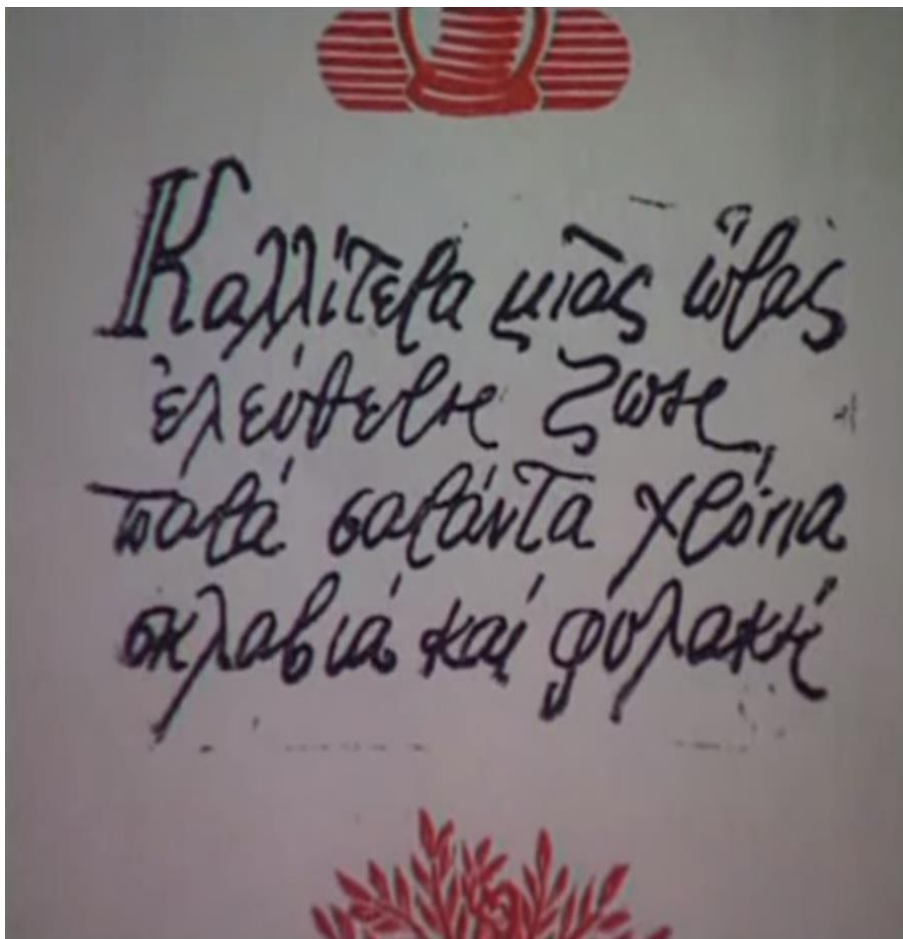 Καλλίτερα μιᾶς ὥρας
ἐλεύθερη ζωή,
παρά σαράντα χρόνια
σκλαβιά καί φυλακή